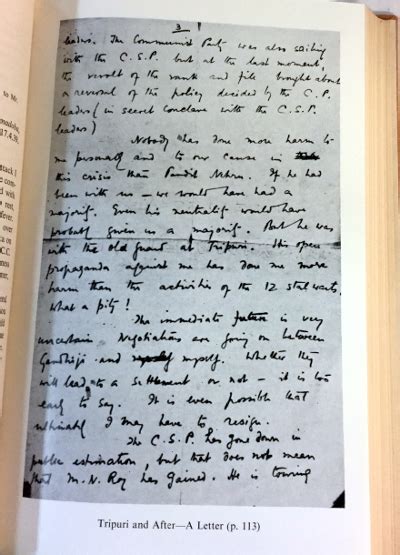 3
leaders. The Communist Party was also sailing
with the C.S.P. but at the last moment
the revolt of the rank and file brought about
a reversal of the policy decided by the C.P.
leaders (in secret conclave with the C.S.P.
leaders)
Nobody has done more harm to
me personally and to our cause in
this crisis than Pandit Nehru. If he had
been with us — we would have had a
majority. Even his neutrality would have
probably given us a majority. But he was
with the old guard at Tripuri. His open
propaganda against me has done me more
harm than the activities of the 12 stalwarts.
What a pity!
The immediate future is very
uncertain. Negotiations are going on between
Gandhiji and myself. Whether they
will lead to a settlement or not — it is too
early to say. It is even possible that
ultimately I may have to resign.
The C.S.P. has gone down in
public estimation, but that does not mean
that M.N. Roy has gained. He is touring
Tripuri and After—A Letter (p. 113)
to Mr.
17.4.39,
attack I
fever.
over